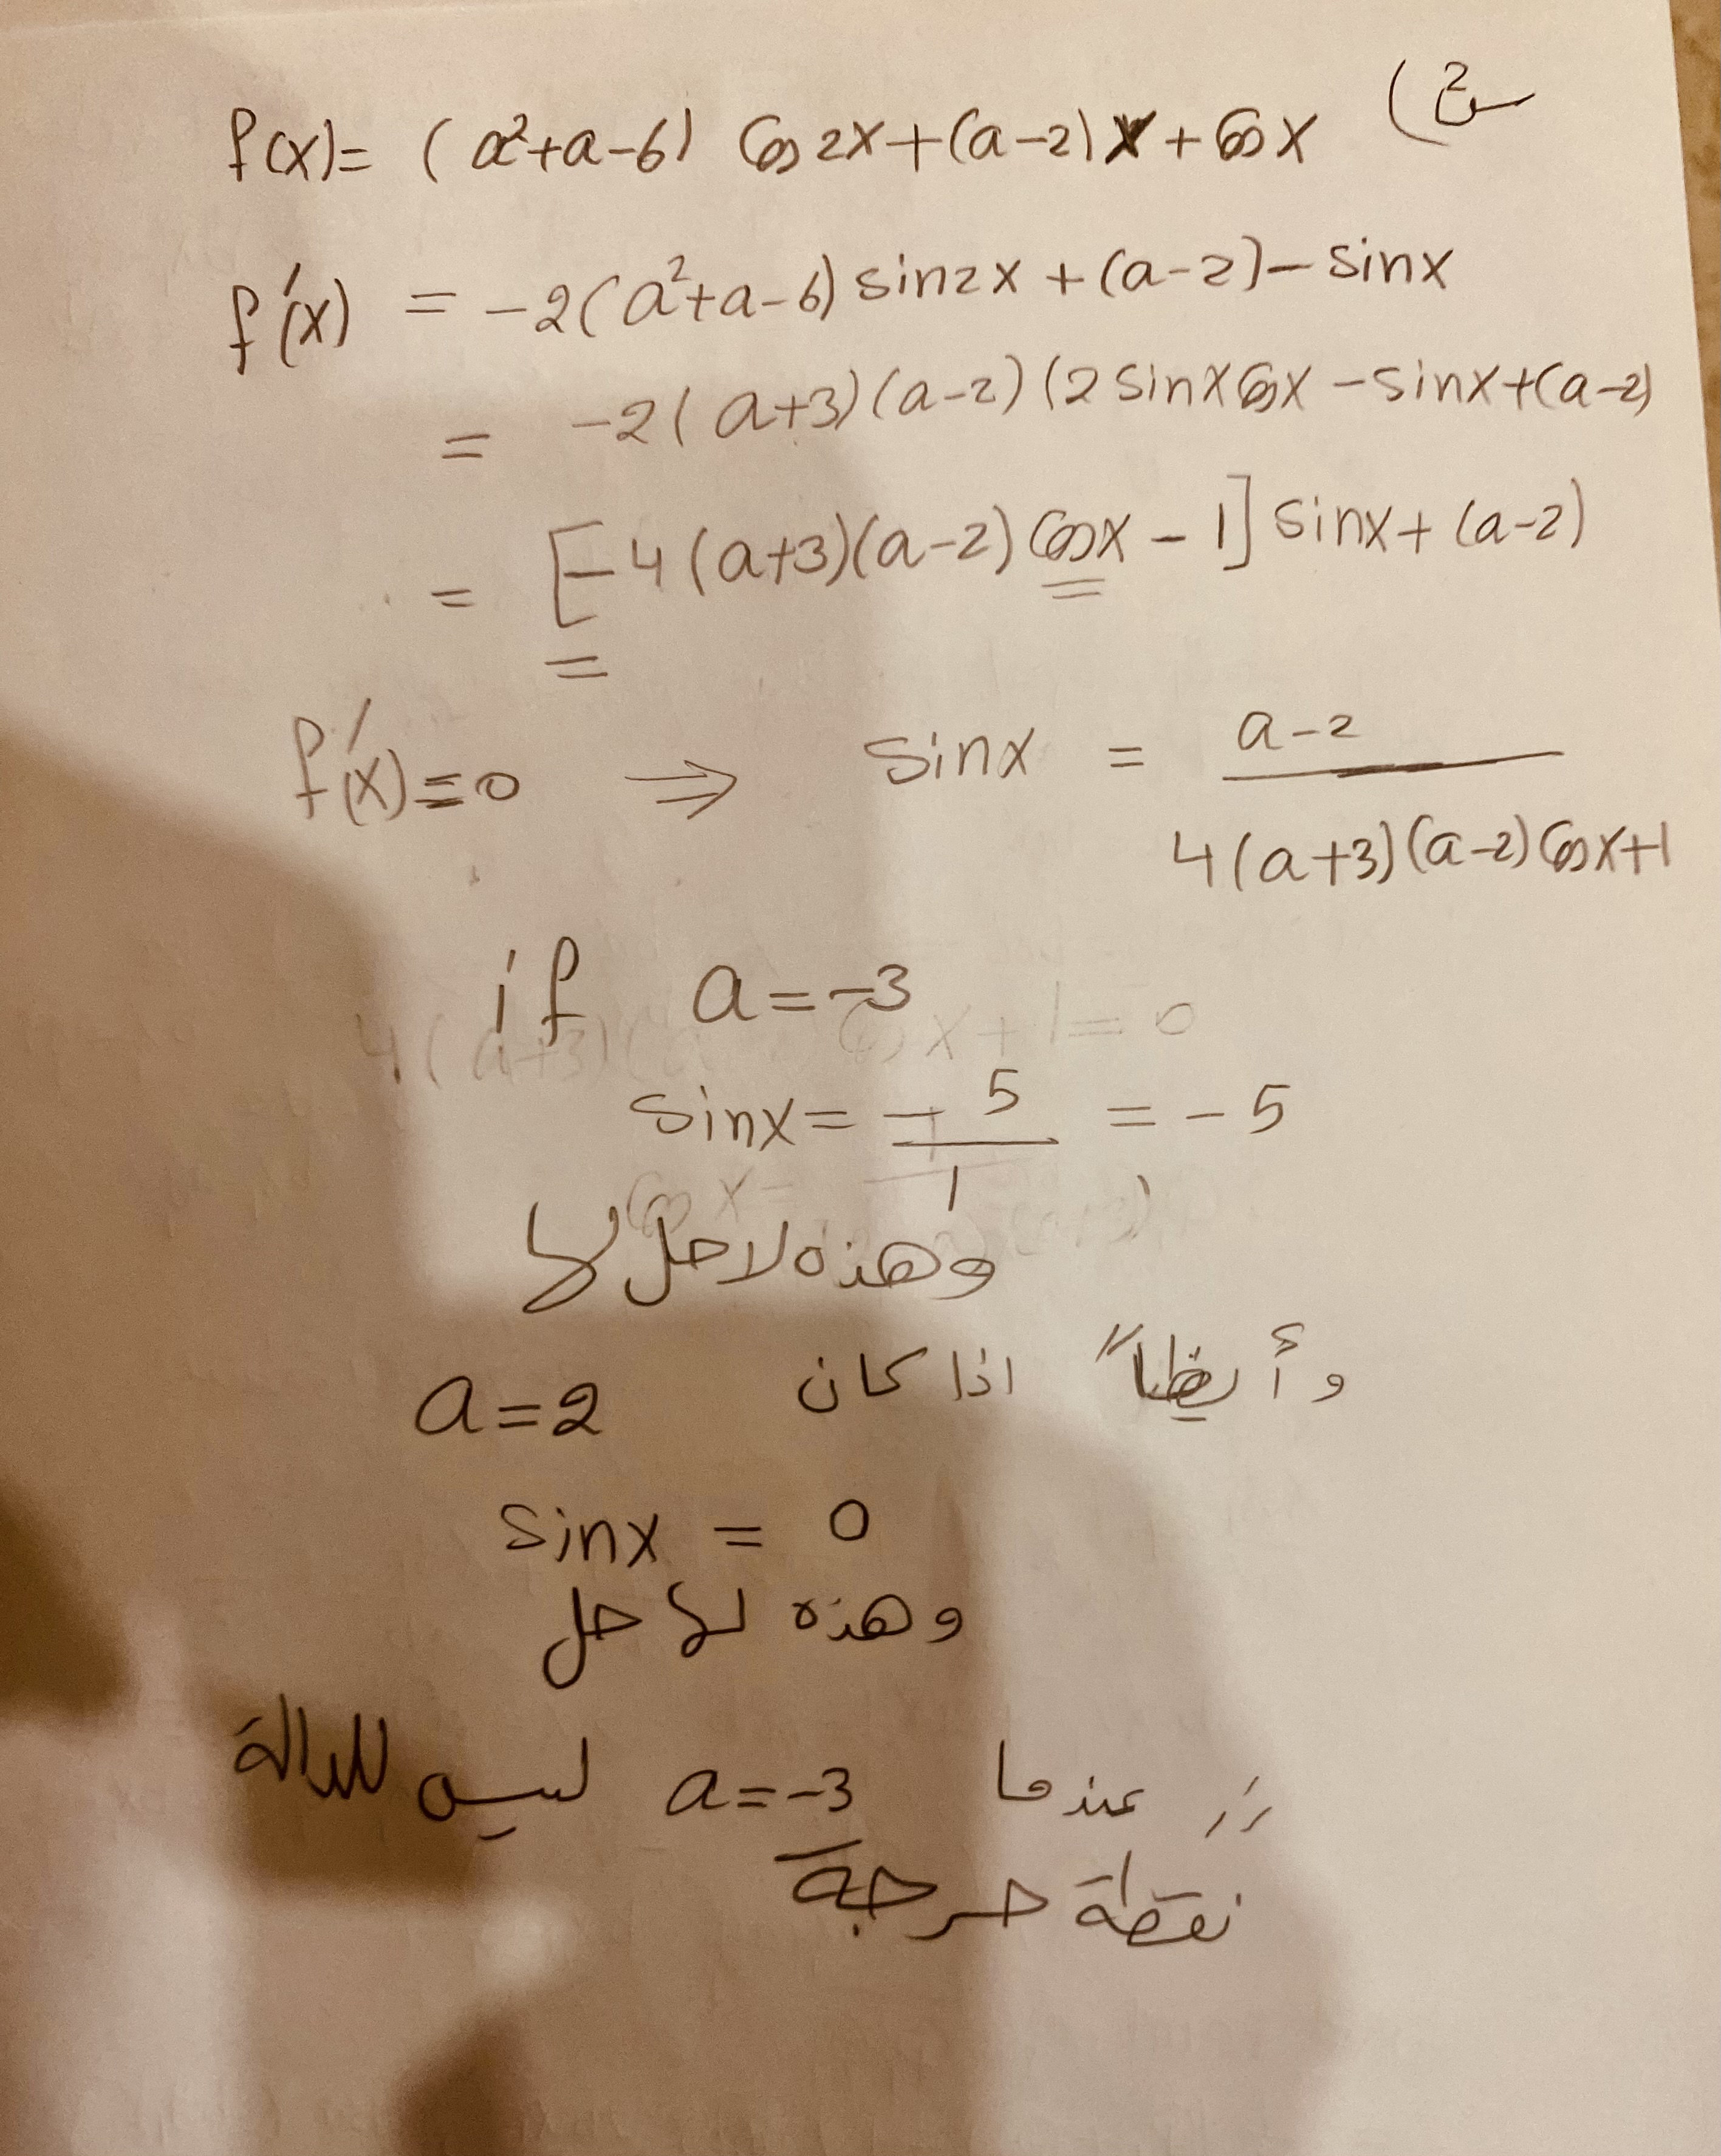 س2)
f(x)= (a²+a-6) Cos2x+(a-2)x+Cosx
f'(x) = -2(a²+a-6) sin2x+(a-2)-sinx
= -2(a+3)(a-2)(2sinxCosx-sinx+(a-2)
= [-4(a+3)(a-2)Cosx-1] sinx+(a-2)
=
f'(x)=0 ⇒ sinx = a-2 / 4(a+3)(a-2)Cosx+1
if a=-3
sinx= -5/1 = -5
وهذه لا حل لها
وأيظاً اذا كان a=2
sinx = 0
وهذه لها حل
∴ عندما a=-3 ليس للدالة
نقطة حرجة